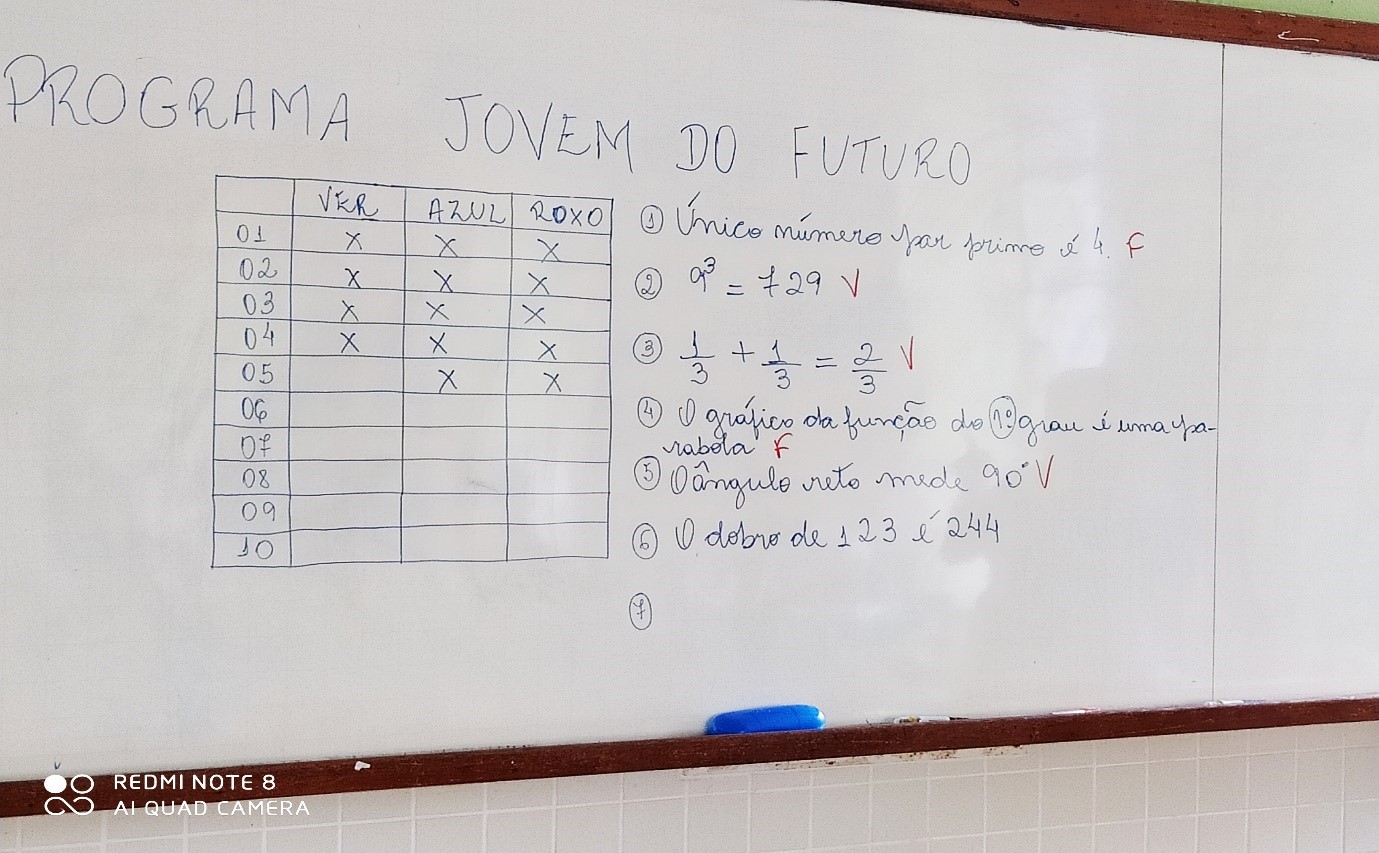 PROGRAMA JOVEM DO FUTURO
VER AZUL ROXO
01 X X X
02 X X X
03 X X X
04 X X X
05 X X
06
07
08
09
10
① Único número par primo é 4. F
② 9³ = 729 V
③ 1/3 + 1/3 = 2/3 V
④ O gráfico da função do 1º grau é uma pa-
rabola F
⑤ O ângulo reto mede 90° V
⑥ O dobro de 123 é 244
⑦
REDMI NOTE 8
AI QUAD CAMERA